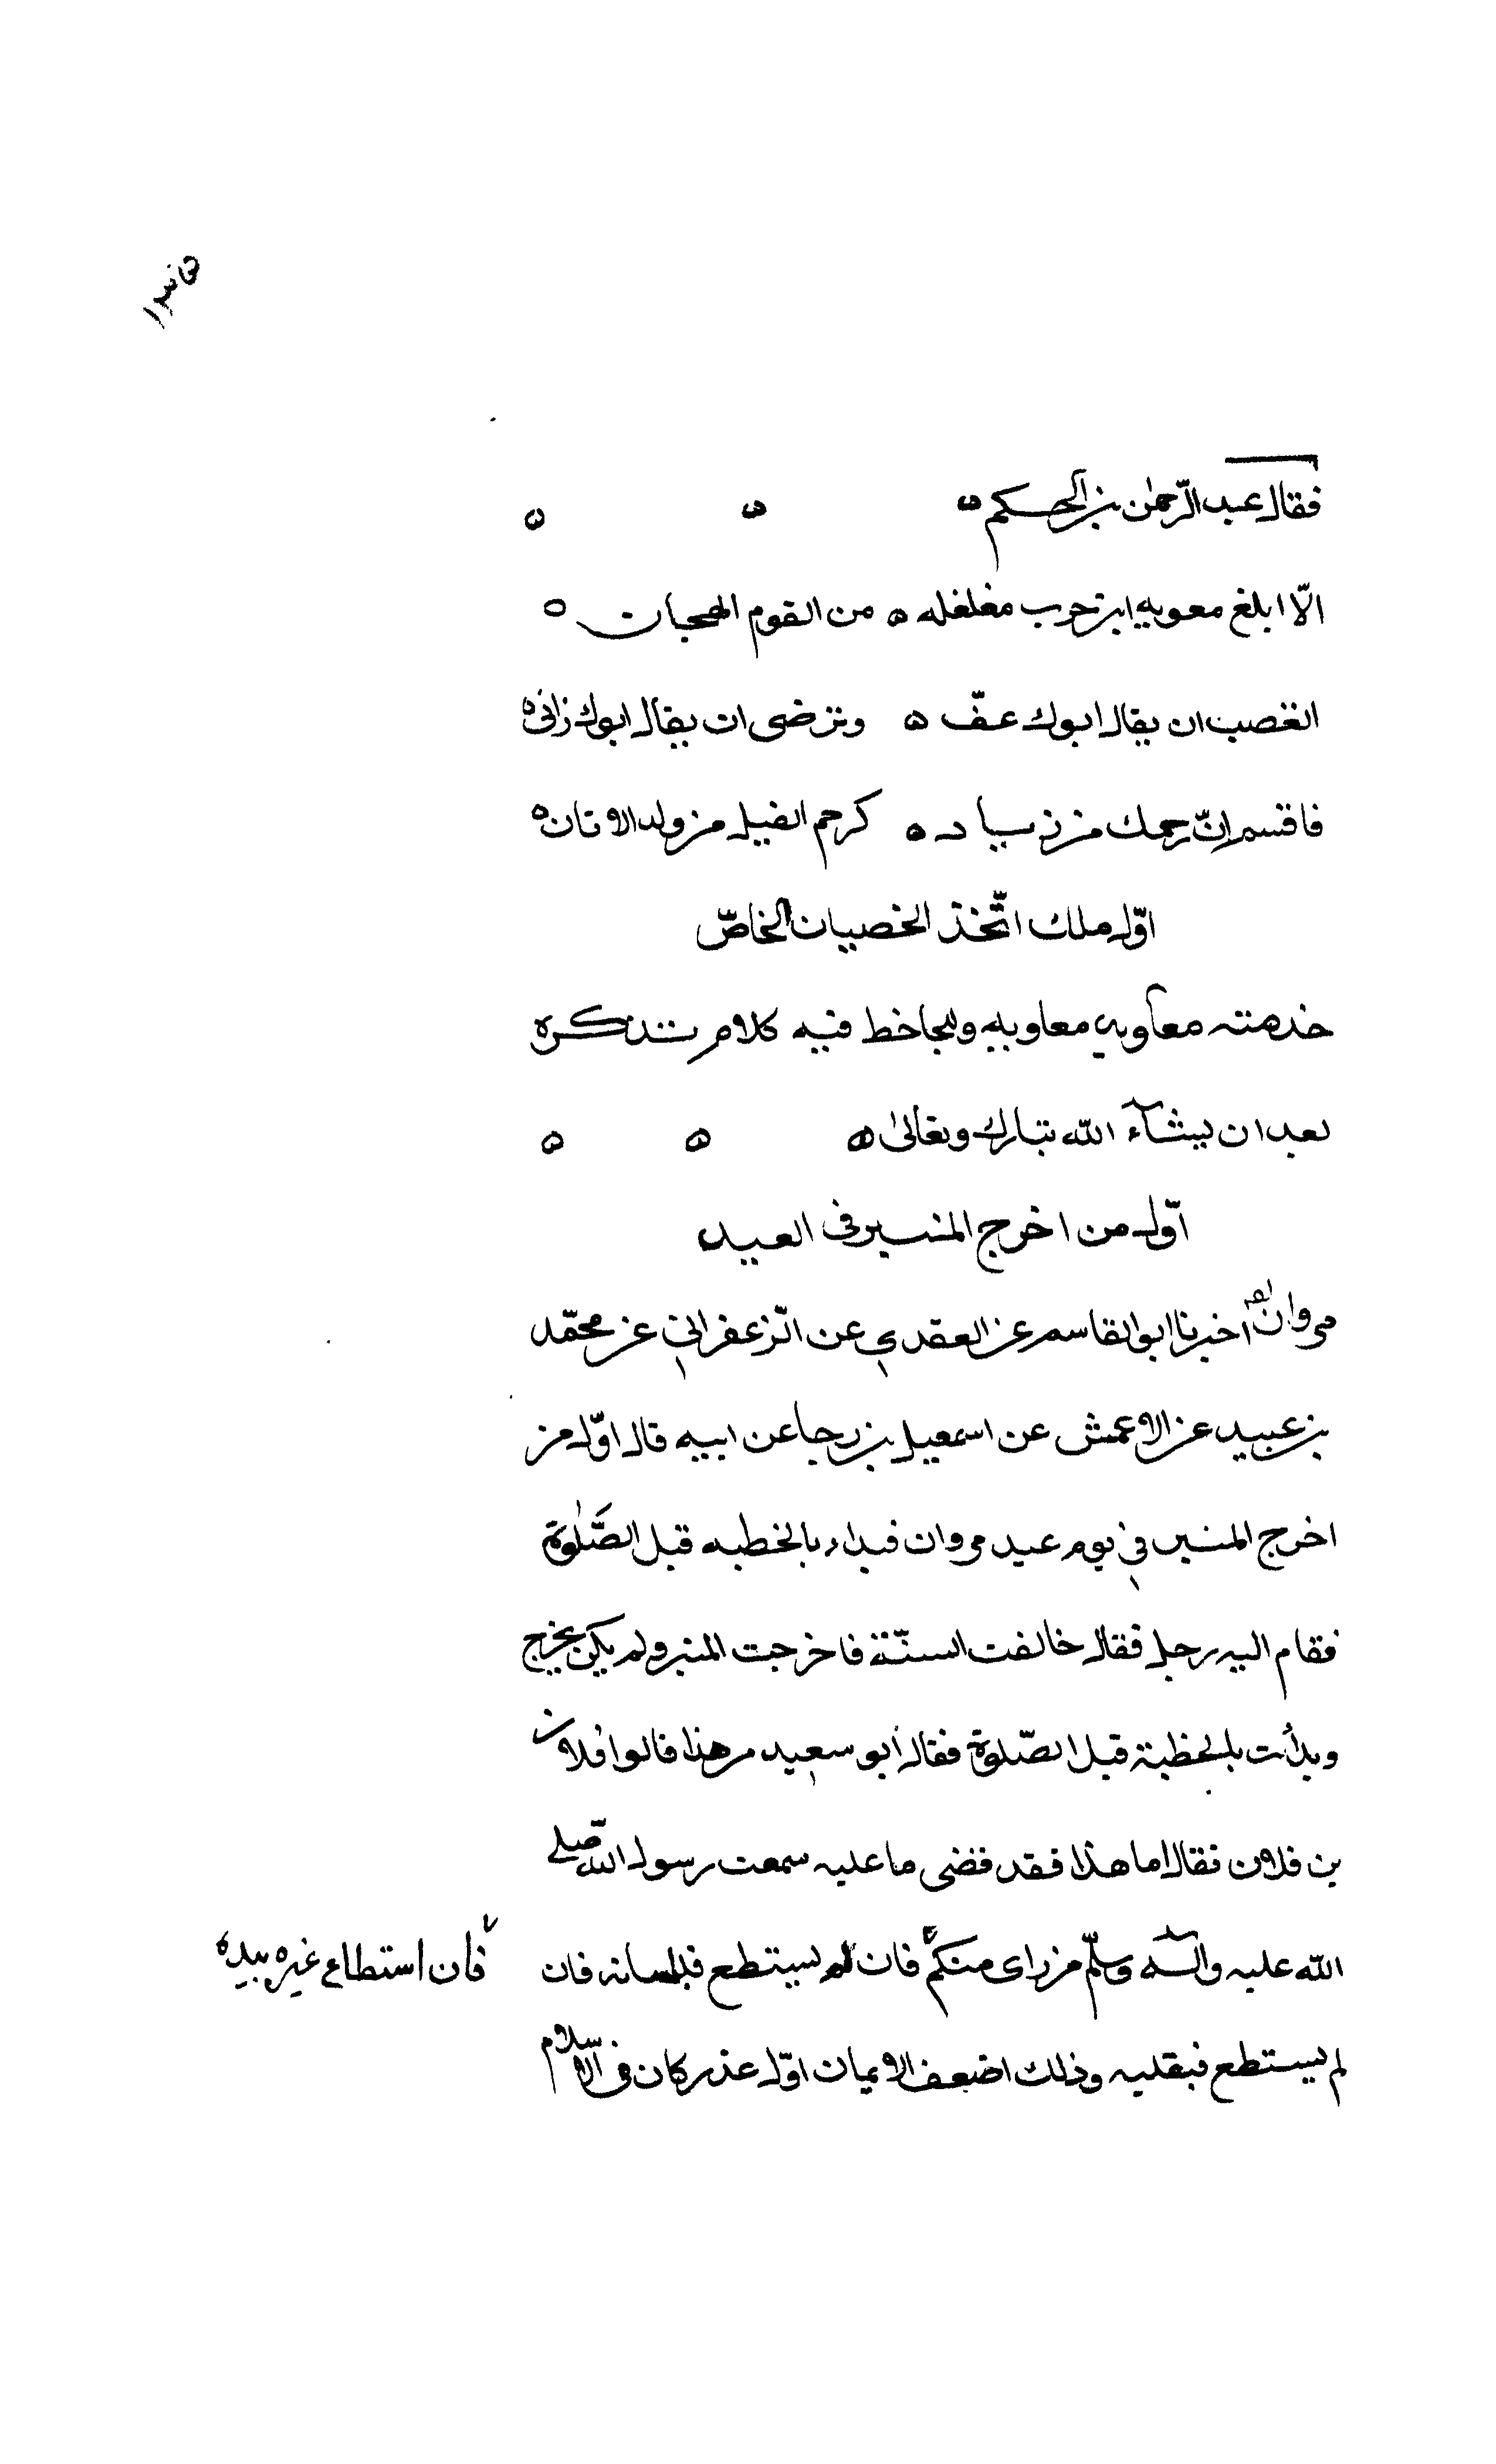 فقال عبد الرّحمٰن بن الحكم ه ه ه
الّا ابلغ معويه ابن حرب مغلغله ه من القوم الهجان ه
اتغضب ان يقال ابوك عفّ ه وترضى ان يقال ابوك زانى ه
فاقسم انّ رحمك من زياد ه كرحم الفيل من ولد الاتان ه
اوّل ملك اتّخذ الخصيان لخاصّ
خدمته معاويه معاويه وللجاحظ فيه كلام نذكره
بعد ان يشآء الله تبارك وتعالىٰ ه ه ه
اوّل من اخرج المنبر فى العيد
مروان اخبرنا ابو القاسم عن العقدي عن الزعفرانى عن محمّد
بن عبيد عن الاعمش عن اسمعيل بن رجا عن ابيه قال اوّل من
اخرج المنبر في يوم عيد مروان فبداء بالخطبه قبل الصَّلٰوة
فقام اليه رجل فقال خالفت السنّة فاخرجت المنبر ولم يكن يخرج
وبدأت بالخطبة قبل الصّلوة فقال ابو سعيد من هذا قالوا فلان
بن فلان فقال اما هذا فقد قضى ما عليه سمعت رسول الله صلّى
الله عليه وآله وسلّم من راى منكم فان لم يستطع فبلسانه فان
فان استطاع غيره بيده
لم يستطع فبقلبه وذلك اضعف الايمان اوّل عذر كان فى الاسلام